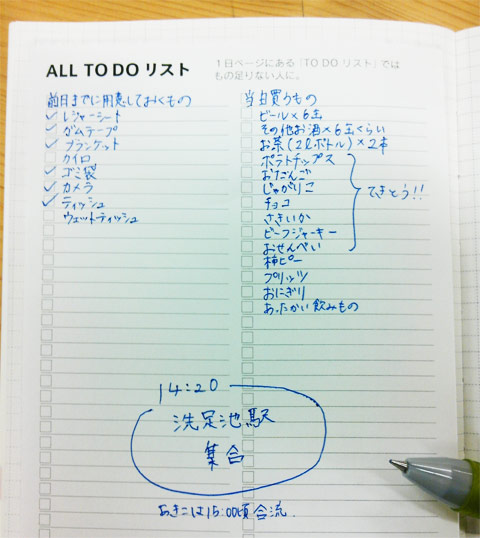 ALL TO DO リスト
1日ページにある「TO DO リスト」では
もの足りない人に。
前日までに用意しておくもの
レジャーシート
ガムテープ
ブランケット
カイロ
ゴミ袋
カメラ
ティッシュ
ウェットティッシュ
当日買うもの
ビール×6缶
その他お酒×6缶くらい
お茶(2ℓボトル)×2本
ポテトチップス
おだんご
じゃがりこ
チョコ
さきいか
ビーフジャーキー
おせんべい
てきとう!!
柿ピー
プリッツ
おにぎり
あったかい飲みもの
14:20
洗足池駅
集合
あきこは15:00頃合流.